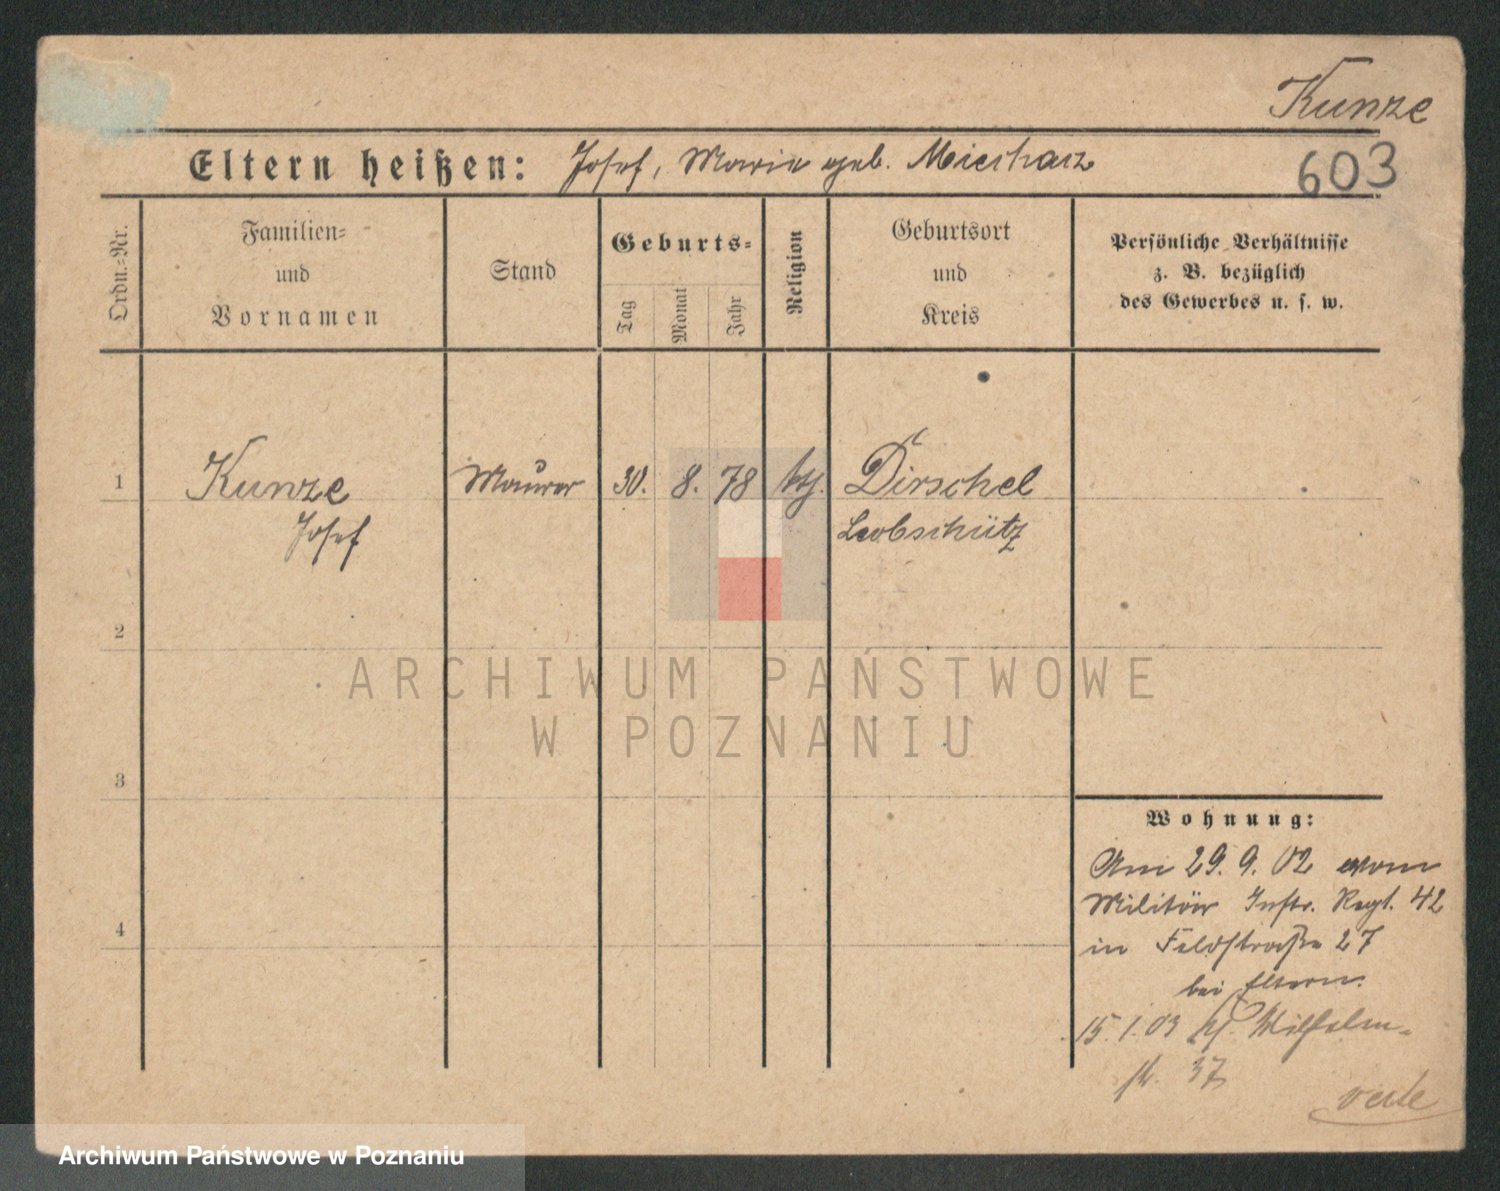 Kunze
Eltern heißen: Josef, Marie geb.
603
Ordn.=Nr.
Familien=
und
Vornamen
Stand
Geburts=
Tag
Monat
Jahr
Religion
Geburtsort
und
Kreis
Persönliche Verhältnisse
z. B. bezüglich
des Gewerbes u. s. w.
1 Kunze Maurer 30. 8. 78 kth. Dirschel
Josef Leobschütz
2
3
4
Wohnung:
Am 29. 9. 02 vom
Militär Inftr. Regt. 42
in Feldstraße 27
bei Eltern.
15. 1. 03 Wilhelm-
str. 37
verte
ARCHIWUM PAŃSTWOWE
W POZNANIU
Archiwum Państwowe w Poznaniu